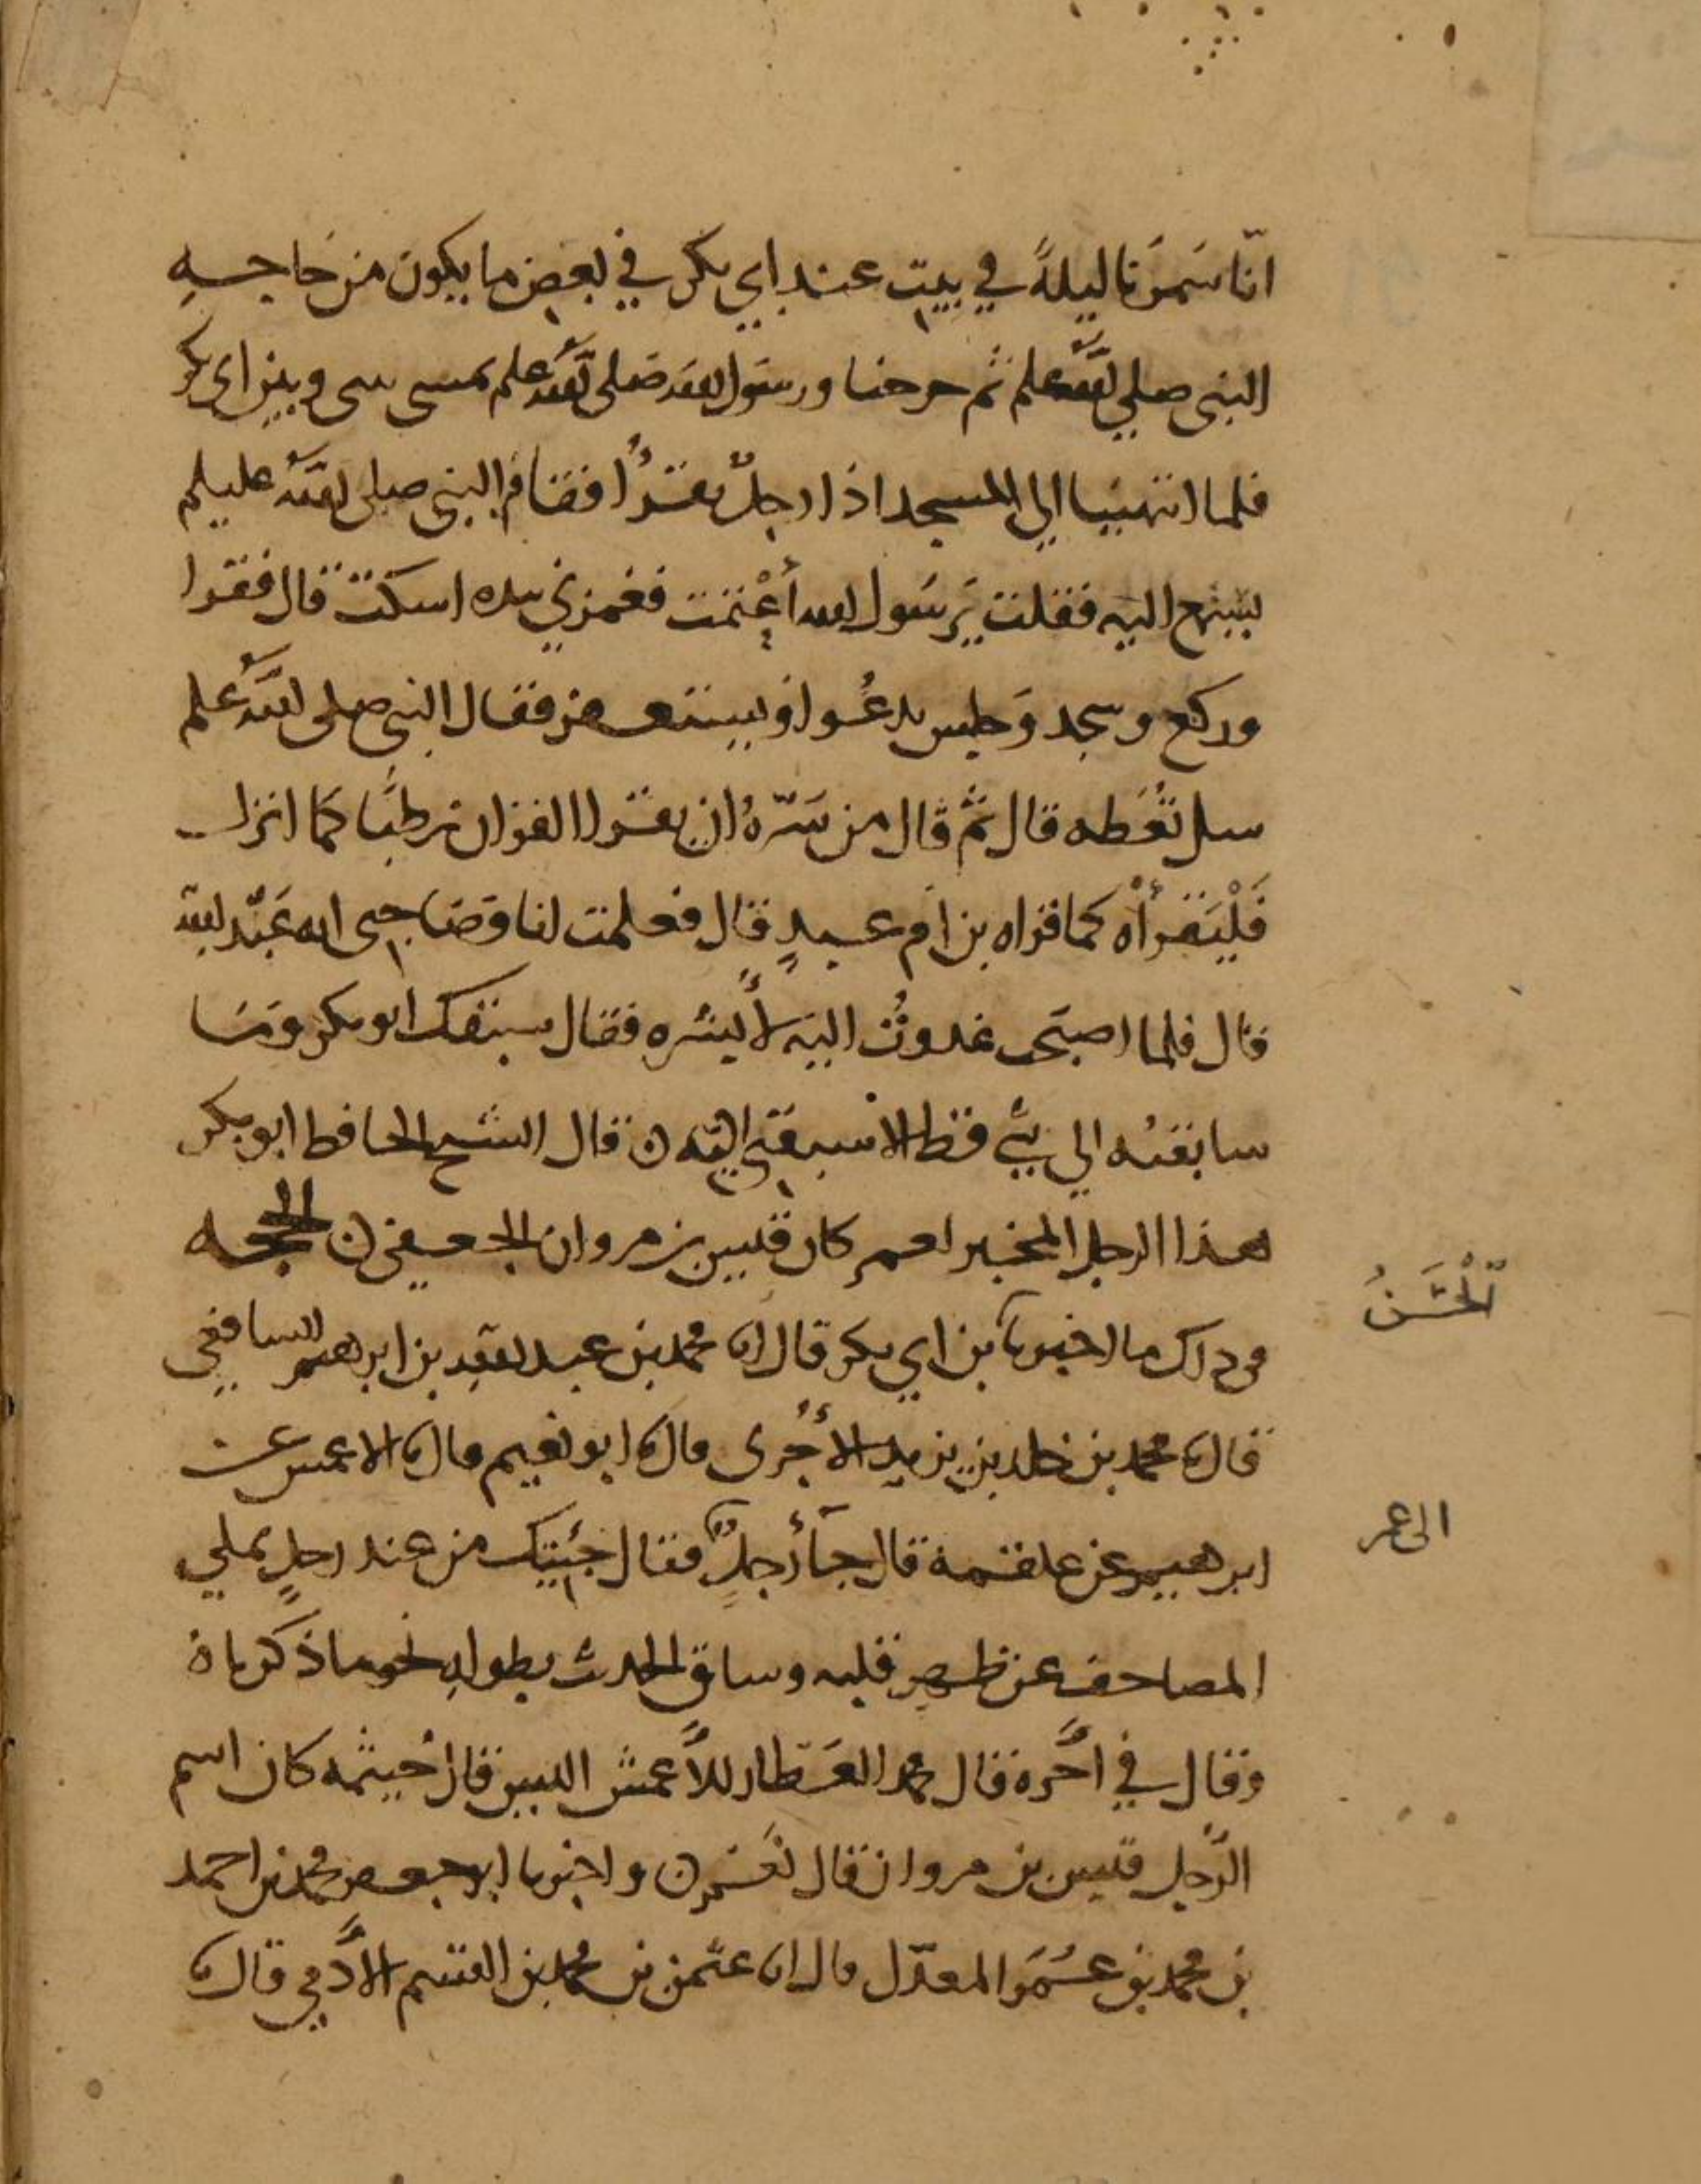 انّا سَمَرنا ليلةً في بيت عند ابي بكر في بعض ما يكون من حاجه
النبي صلى الله علم ثم خرجنا ورسول الله صلى الله علم يمسي بيني وبين ابي بكر
فلما انتهينا الى المسجد اذا رجلٌ يقرُا فقام النبي صلى الله عليلم
يستمع اليه فقلت يرسول الله أَعْتمت فغمزني بيده اسكت قال فقرا
وركع وسجد وَجلس يدعُوا ويستغفر فقال النبي صلى الله علم
سل تُعْطه قال ثم قال من سَرّهُ ان يقرا القران رطبًا كما انزل
فَلْيَقرأْه كما قراه بن ام عبدٍ قال فعلمت انا وصَاحبي انه عَبْد الله
قال فلما اصبحت غدوتُ اليه لأُبشره فقال سبقك ابو بكر وما
سابقته الى شيً قط الا سبقني اليه ن قال الشيخ الحافظ ابو بكر
هذا الرجل المخبر لعمر كان قيس بن مروان الجعفي ن الحجه
الْحَسَنُ
في ذلك ما اخبرنا بن ابي بكر قال انا محمد بن عبد الله بن ابرهيم الشافعي
قال نا محمد بن خلد بن يزيد الأجُري قال نا ابو نعيم قال نا الاعمش عن
الى عمر
ابرهيم عن علقمة قال جآ رجلٌ فقال جئتك من عند رجلٍ يملي
المصاحف عن ظهر قلبه وساق الحديث بطوله نحو ما ذكرناه
وقال في آخره فقال محمد العَطار للأعمش اليس قال خيثمه كان اسم
الرّجل قيس بن مروان قال نعَم ن واخبرنا ابو جعفر محمد بن احمد
بن محمد بن عُمَر المعدّل قال انا عثمن بن محمد بن القسم الأدمي قال نا